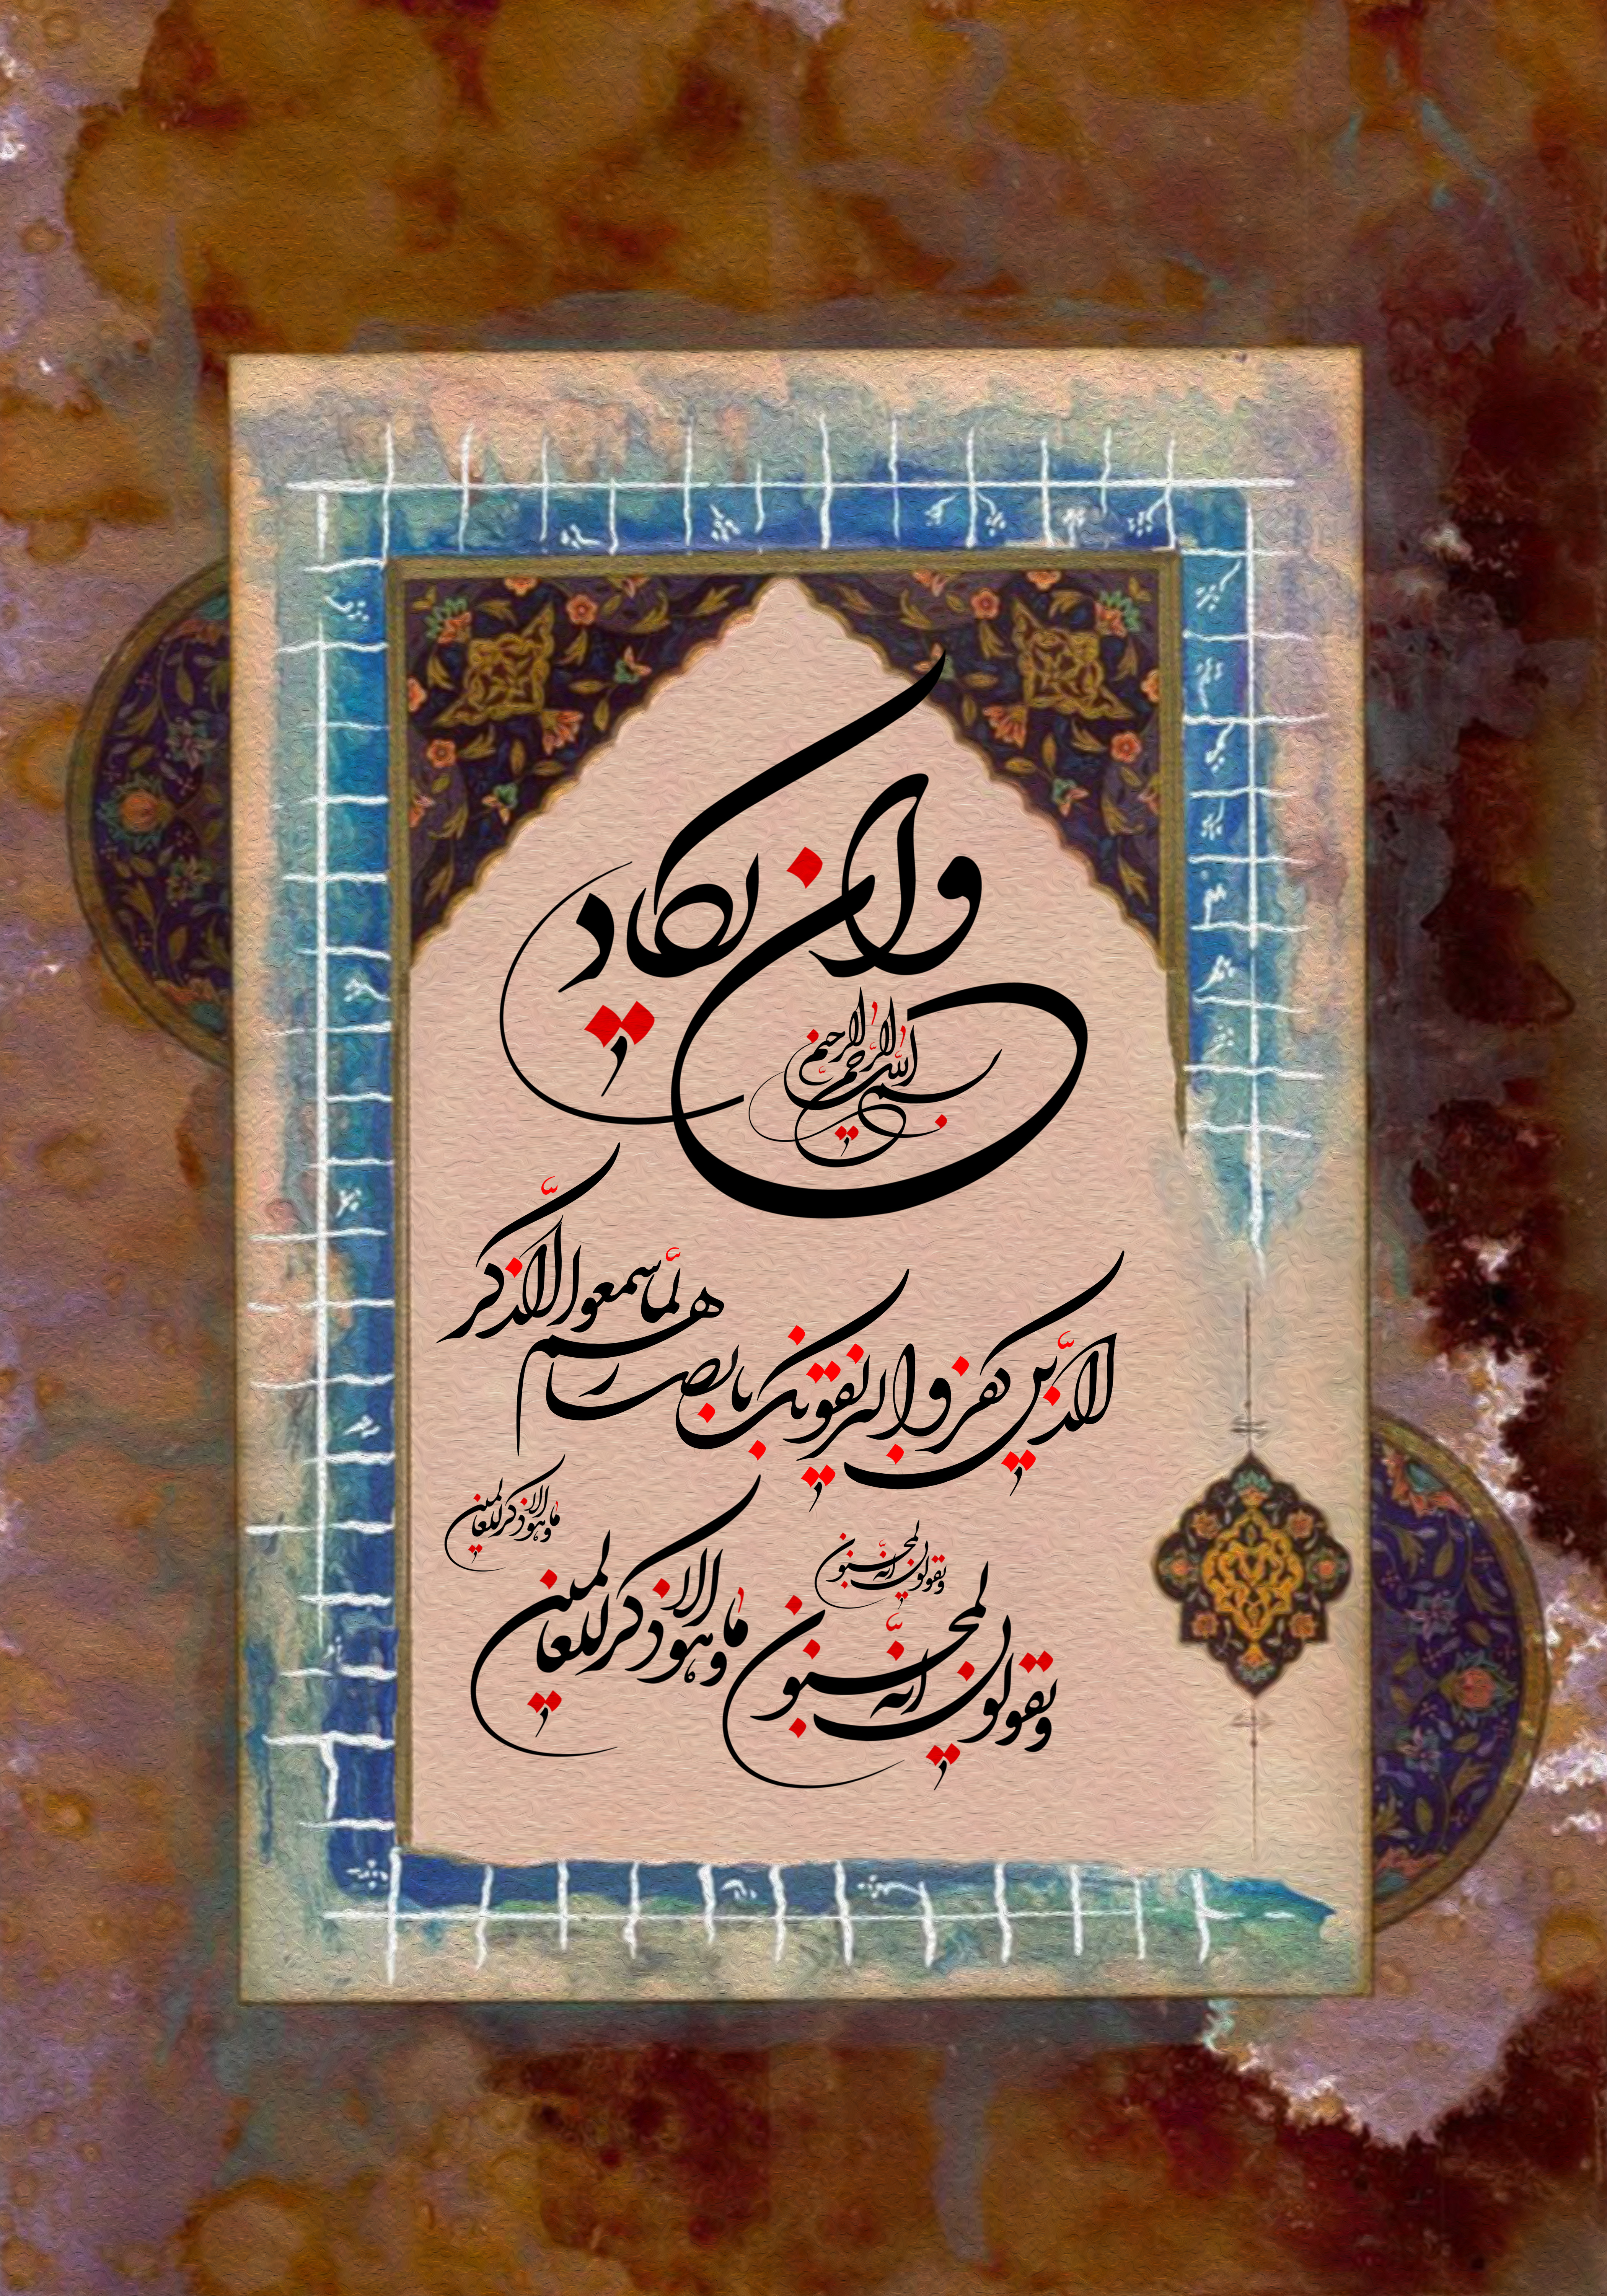 وان یکاد
بسم الله الرحمن الرحیم
الذین کفروا لیزلقونک بابصارهم لما سمعوا الذکر
و یقولون انه لمجنون
و یقولون انه لمجنون
و ما هو الا ذکر للعالمین
و ما هو الا ذکر للعالمین